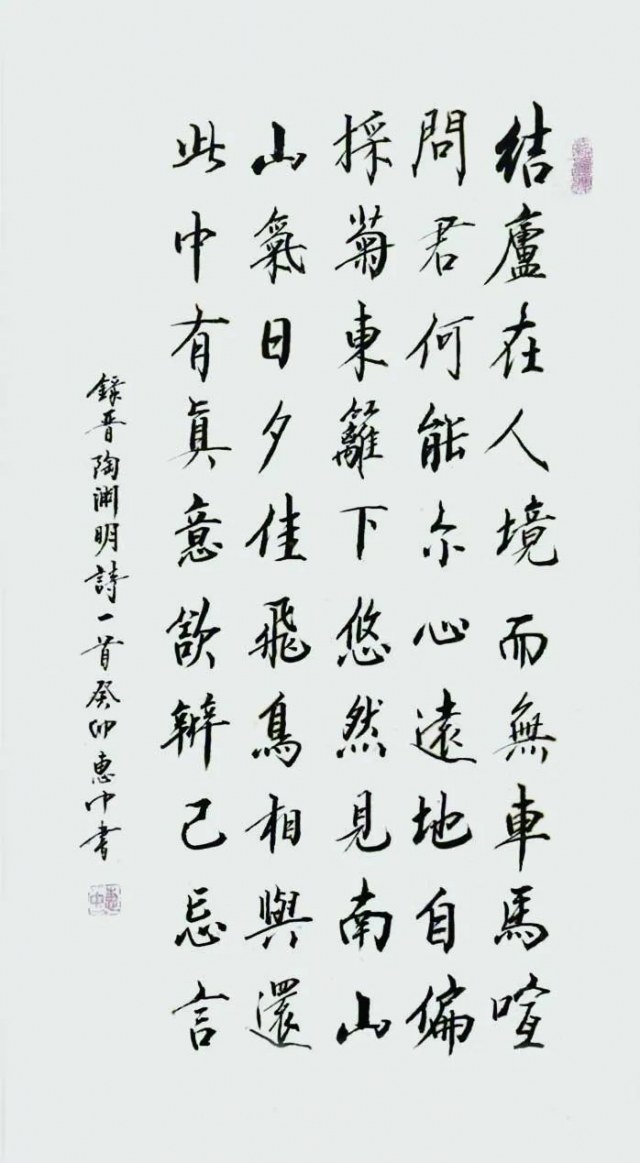 結廬在人境而無車馬喧
問君何能尔心遠地自偏
採菊東籬下悠然見南山
山氣日夕佳飛鳥相與還
此中有真意欲辨已忘言
錄晉陶淵明詩一首癸卯惠中書
惠中